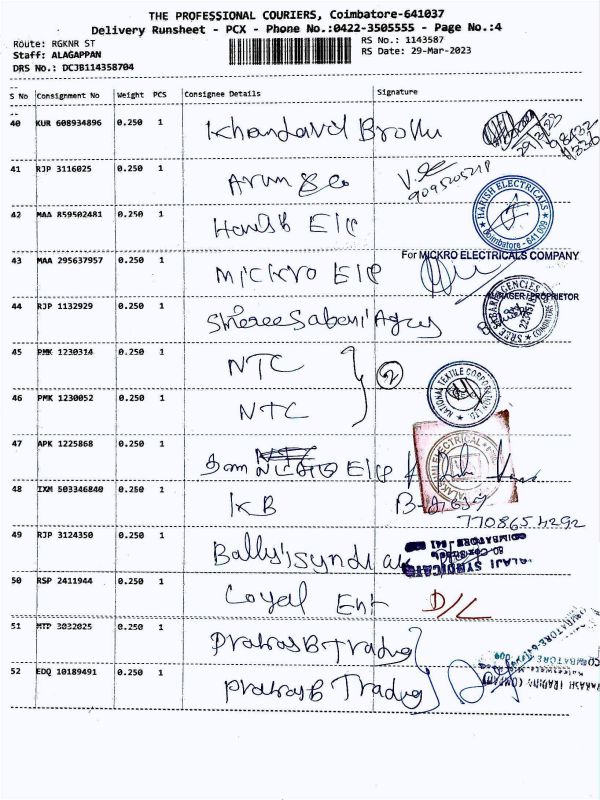 THE PROFESSIONAL COURIERS, Coimbatore-641037
Delivery Runsheet - PCX - Phone No.:0422-3505555 - Page No.:4
Route: RGKNR ST
RS No.: 1143587
Staff: ALAGAPPAN
RS Date: 29-Mar-2023
DRS No.: DCJB114358704
S No Consignment No Weight PCS Consignee Details Signature
40 KUR 608934896 0.250 1
29/3/23
41 RJP 3116025 0.250 1 Arun & Co
9095205218
42 MAA 859502481 0.250 1 Harish Elc
HARISH ELECTRICALS
Coimbatore - 641 009
43 MAA 295637957 0.250 1 Mickro Elc
For MICKRO ELECTRICALS COMPANY
MANAGER / PROPRIETOR
44 RJP 1132929 0.250 1 Shree Sabari
SREE SABARI AGENCIES
45 PMK 1230314 0.250 1 NTC
2
46 PMK 1230052 0.250 1 NTC
NATIONAL TEXTILE CORPORATION LTD
47 APK 1225868 0.250 1 Elc
48 IXM 503346840 0.250 1 KB
7708654292
49 RJP 3124350 0.250 1 Syndi
BALAJI SYNDICATE
COIMBATORE - 641
50 RSP 2411944 0.250 1 Loyal Ent D/L
51 MTP 3032025 0.250 1 Prakash Trading
COIMBATORE
52 EDQ 10189491 0.250 1 Prakash Trading
PRAKASH TRADING COMPANY